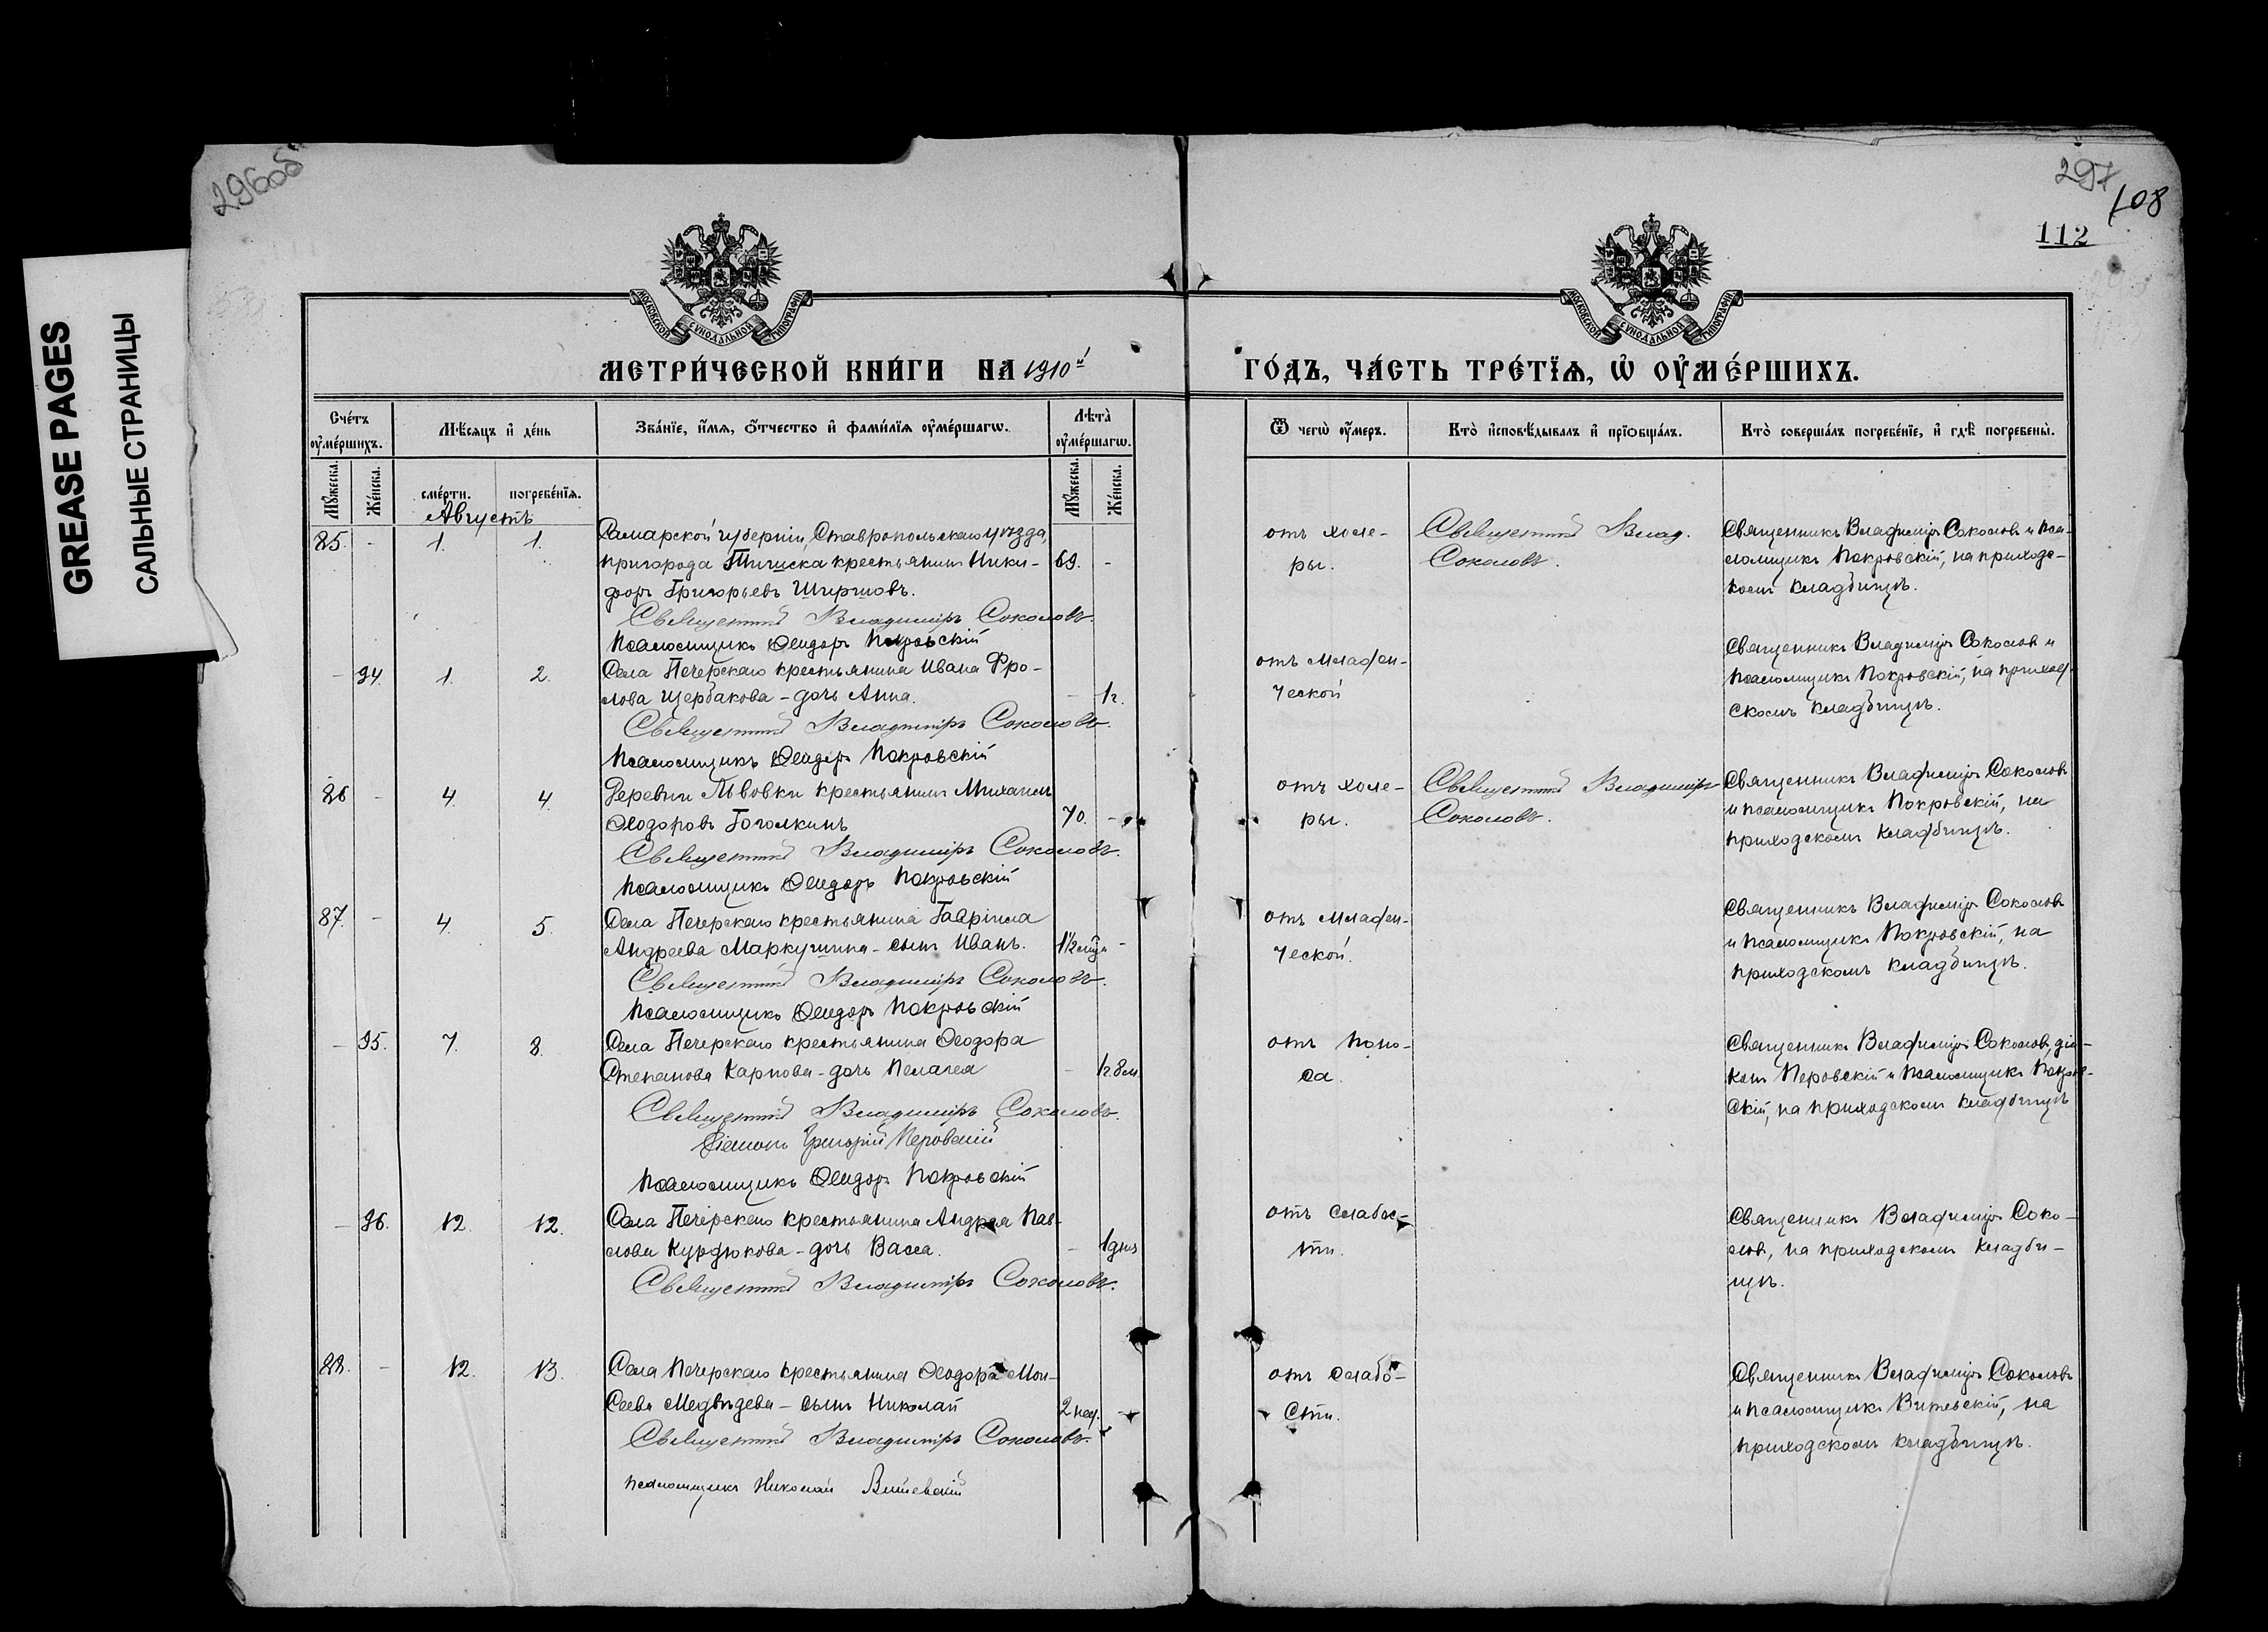 296об
297
108
112
GREASE PAGES
САЛЬНЫЕ СТРАНИЦЫ
МОСКОВСКОЙ СѴНОДАЛЬНОЙ ТИПОГРАФІИ
МОСКОВСКОЙ СѴНОДАЛЬНОЙ ТИПОГРАФІИ
МЕТРИ́ЧЕСКОЙ КНИ́ГИ НА 1910й
ГО́ДЪ, ЧА́СТЬ ТРЕ́ТЇѦ, Ѽ ОУ҆МЕ́РШИХЪ.
Сче́тъ оу҆ме́ршихъ.
Мѣ́сяцъ и҆ де́нь
Зва́нїе, и҆́мѧ, ѻ҆́тчество и҆ фами́лїѧ оу҆ме́ршагѡ.
Лѣта̀ оу҆ме́ршагѡ.
Мꙋ́жеска.
Же́нска.
сме́рти.
погребе́нїѧ.
Мꙋ́жеска.
Же́нска.
Ѿ чегѡ̀ оу҆́меръ.
Кто̀ и҆сповѣ́дывалъ и҆ прїѻбща́лъ.
Кто̀ соверша́лъ погребе́нїе, и҆ гдѣ̀ погребены̀.
Августъ
85. - 1. 1.
Самарской губерніи, Ставропольскаго уѣзда,
пригорода Тиинска крестьянинъ Ники-
форъ Григорьевъ Ширшовъ.
69. -
Священникъ Владиміръ Соколовъ.
Псаломщикъ Ѳеодоръ Покровскій
отъ холе-
ры.
Священникъ Влад.
Соколовъ.
Священникъ Владиміръ Соколовъ и пса-
ломщикъ Покровскій, на приходс-
комъ кладбищѣ.
- 94. 1. 2.
Села Печерскаго крестьянина Ивана Фро-
лова Щербакова - дочь Анна.
- 1г.
Священникъ Владиміръ Соколовъ.
Псаломщикъ Ѳеодоръ Покровскій
отъ младен-
ческой
Священникъ Владиміръ Соколовъ и
псаломщикъ Покровскій, на приход-
скомъ кладбищѣ.
86 - 4. 4.
Деревни Львовки крестьянинъ Михаилъ
Ѳеодоровъ Гоголкинъ
70. -
Священникъ Владиміръ Соколовъ.
Псаломщикъ Ѳеодоръ Покровскій
отъ холе-
ры.
Священникъ Владиміръ
Соколовъ.
Священникъ Владиміръ Соколовъ
и псаломщикъ Покровскій, на
приходскомъ кладбищѣ.
87. - 4. 5.
Села Печерскаго крестьянина Гавріила
Андреева Маркушина - сынъ Иванъ.
1½ мѣ -
Священникъ Владиміръ Соколовъ.
Псаломщикъ Ѳеодоръ Покровскій
отъ младен-
ческой.
Священникъ Владиміръ Соколовъ
и псаломщикъ Покровскій, на
приходскомъ кладбищѣ.
- 95. 7. 8.
Села Печерскаго крестьянина Ѳеодора
Степанова Карпова - дочь Пелагея
- 1г. 8м.
Священникъ Владиміръ Соколовъ.
Діаконъ Григорій Перовскій
Псаломщикъ Ѳеодоръ Покровскій
отъ поно-
са.
Священникъ Владиміръ Соколовъ, діа-
конъ Перовскій и псаломщикъ Покров-
скій, на приходскомъ кладбищѣ
- 96. 12. 12.
Села Печерскаго крестьянина Андрея Пав-
лова Курдюкова - дочь Васса.
- 1 дня
Священникъ Владиміръ Соколовъ.
отъ слабос-
ти.
Священникъ Владиміръ Соко-
ловъ, на приходскомъ кладби-
щѣ.
88. - 12. 13.
Села Печерскаго крестьянина Ѳеодора Мои-
сеева Медвѣдева - сынъ Николай
2 нед. -
Священникъ Владиміръ Соколовъ.
Псаломщикъ Николай Витевскій
отъ слабо-
сти.
Священникъ Владиміръ Соколовъ
и псаломщикъ Витевскій, на
приходскомъ кладбищѣ.